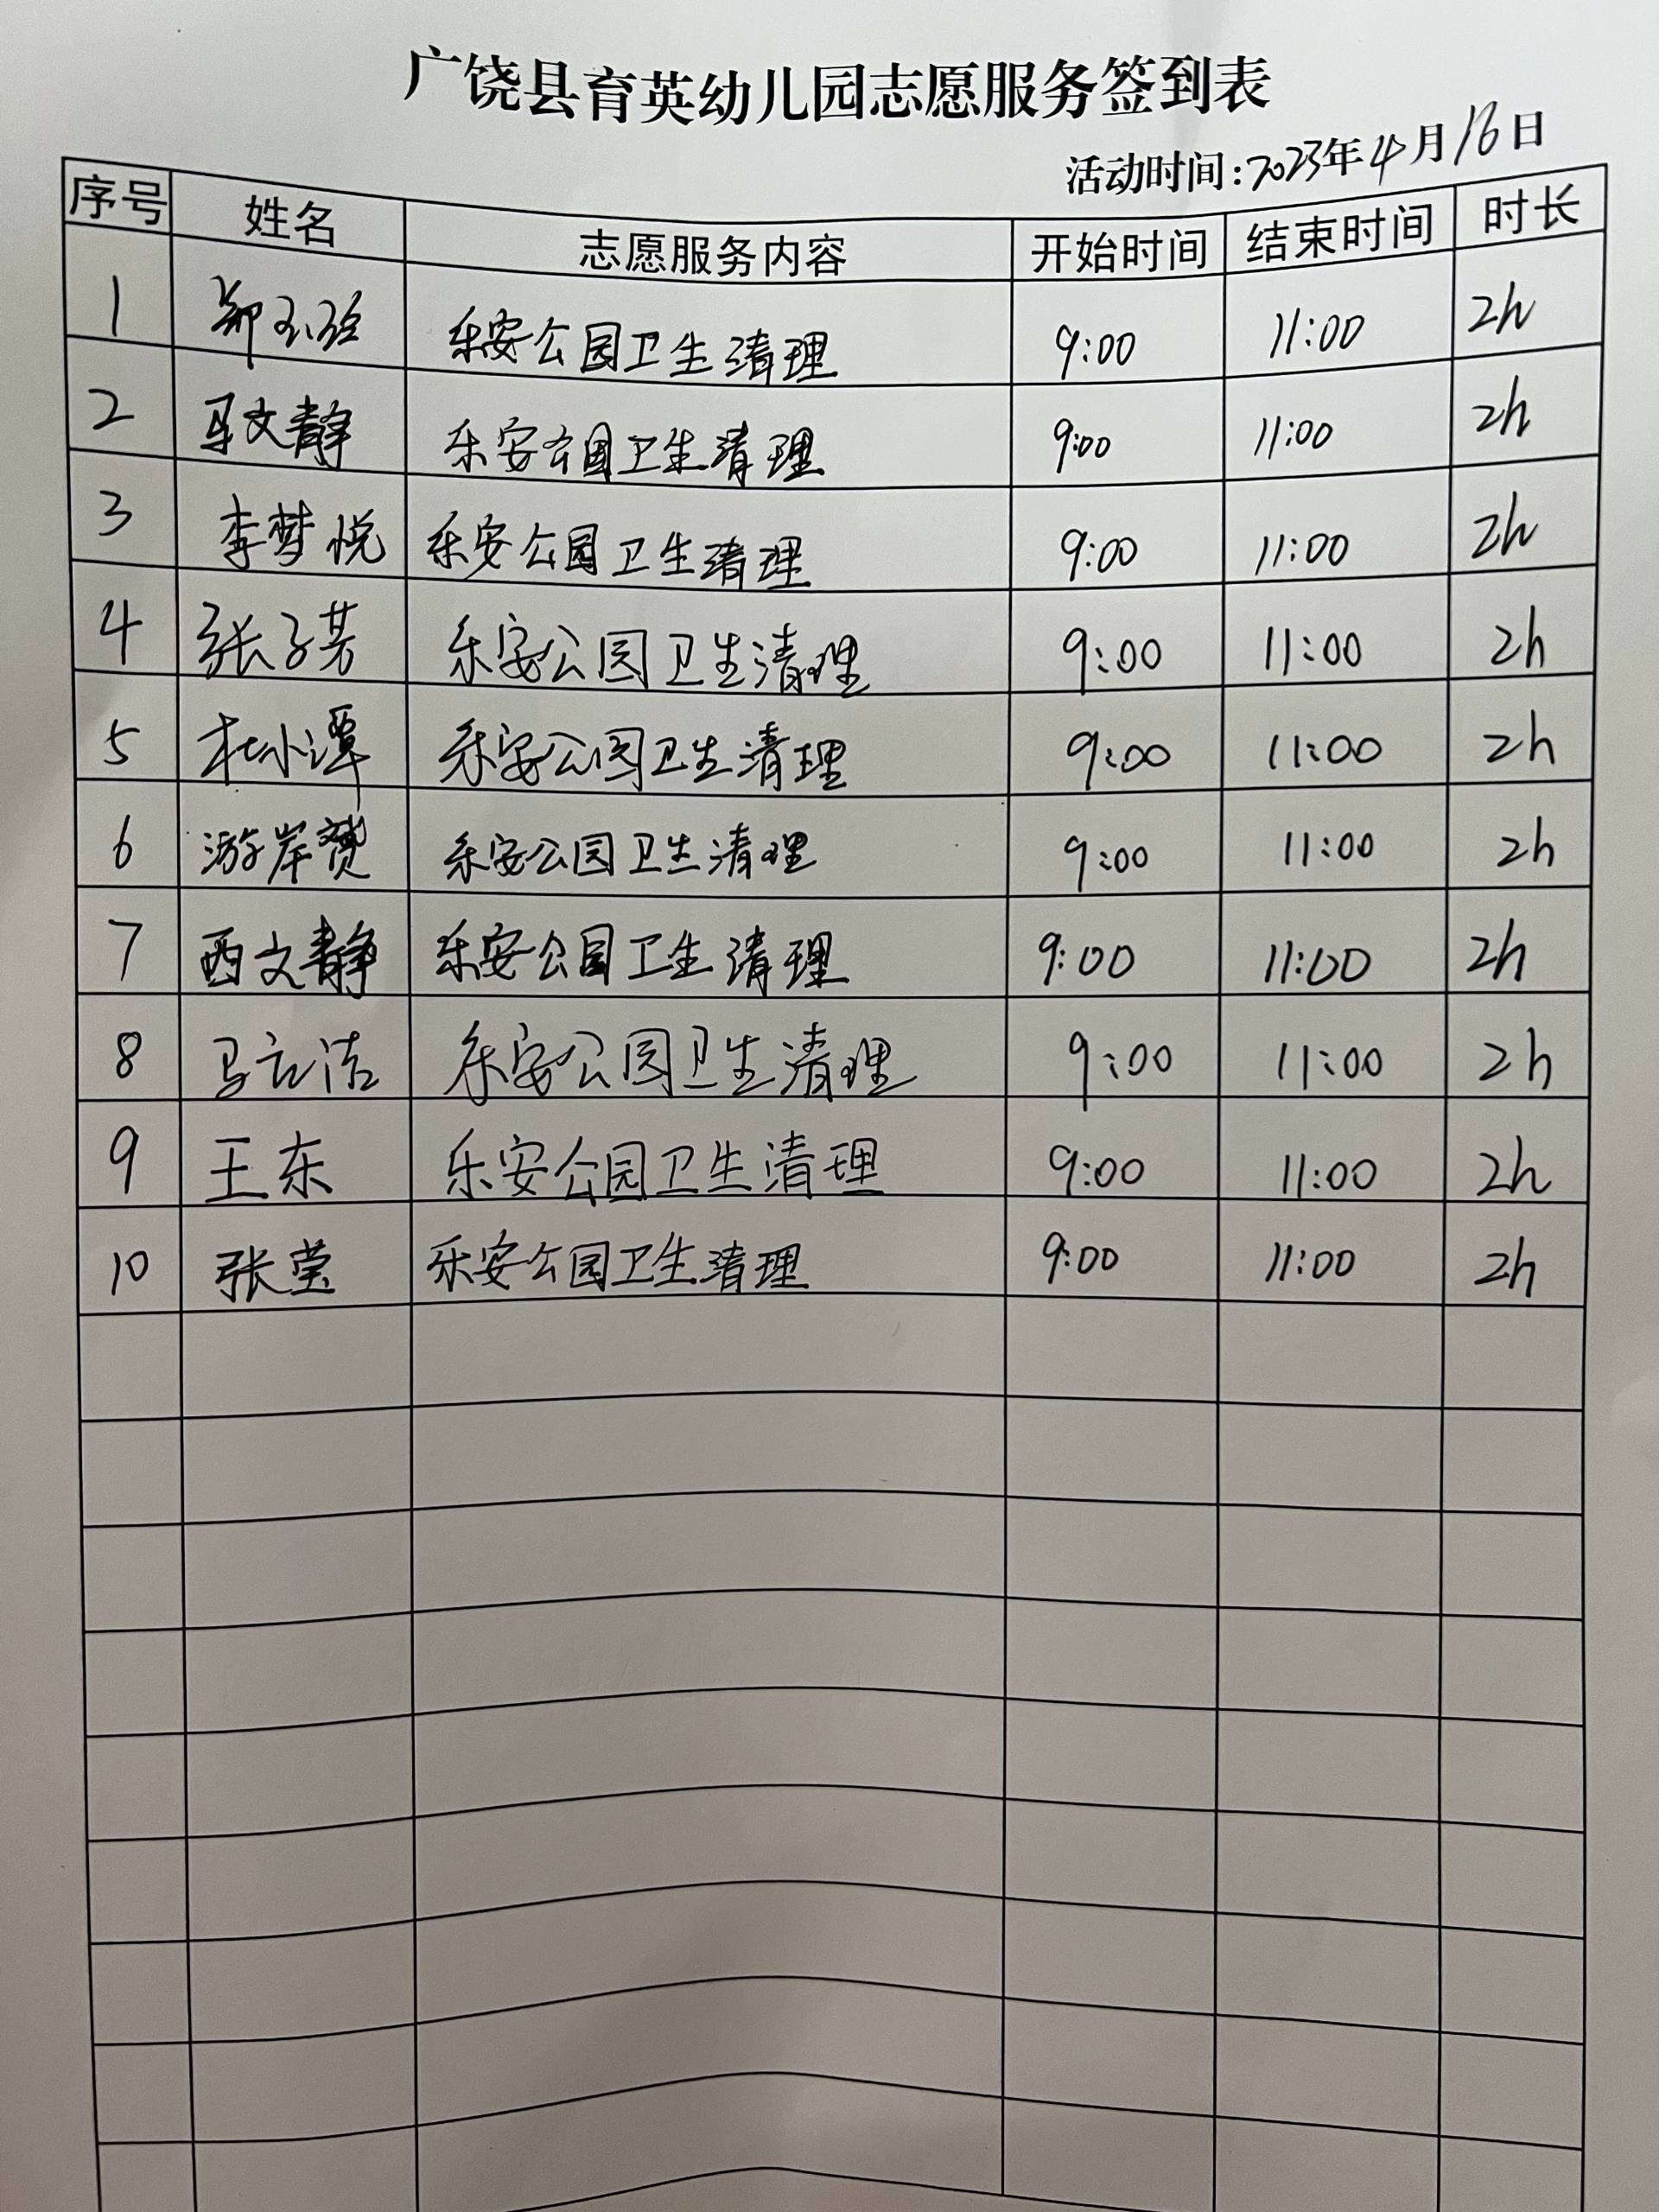 广饶县育英幼儿园志愿服务签到表
活动时间:2023年4月16日
序号 姓名 志愿服务内容 开始时间 结束时间 时长
1 郑玉 乐安公园卫生清理 9:00 11:00 2h
2 马文静 乐安公园卫生清理 9:00 11:00 2h
3 李梦悦 乐安公园卫生清理 9:00 11:00 2h
4 张子芳 乐安公园卫生清理 9:00 11:00 2h
5 杜小潭 乐安公园卫生清理 9:00 11:00 2h
6 游岸赟 乐安公园卫生清理 9:00 11:00 2h
7 西文静 乐安公园卫生清理 9:00 11:00 2h
8 马云洁 乐安公园卫生清理 9:00 11:00 2h
9 王东 乐安公园卫生清理 9:00 11:00 2h
10 张莹 乐安公园卫生清理 9:00 11:00 2h